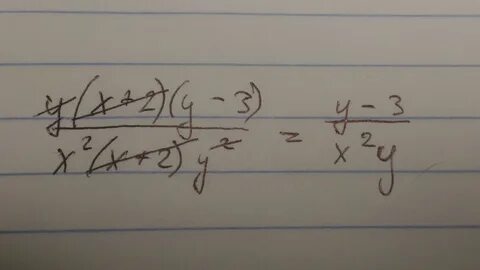 y(x+2)(y-3) / x²(x+2)y² = y-3 / x²y